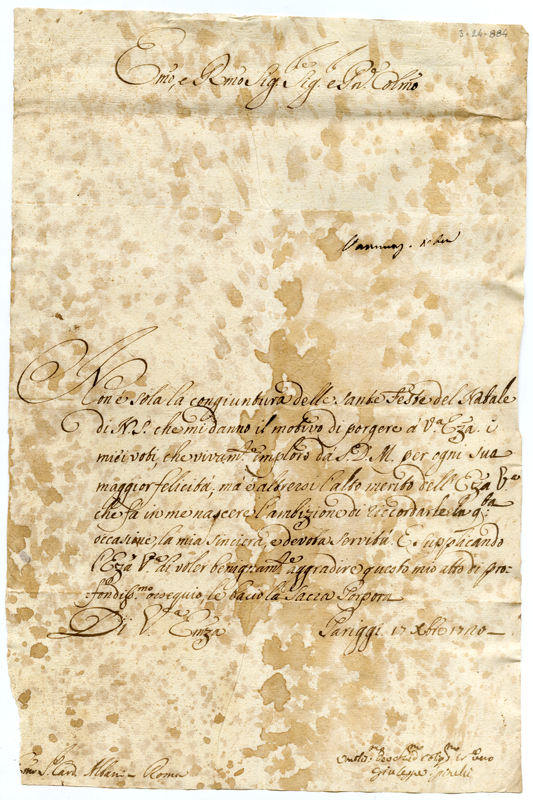 3-24-884
Emo, e Rmo Sig.re Sig.re e Pn̄e Colmo
Non è sola la congiuntura delle Sante Feste del Natale
di N.S. che mi danno il motivo di porgere a V.ra Eza. i
miei voti, che vivam.te imploro da S.D.M. per ogni sua
maggior felicità, ma è altresì l'alto merito dell'Eza V.ra
che fà in me nascere l'ambizione di ricordarle in q.sta
occasione la mia sincera, e devota servitù. E supplicando
l'Eza V.ra di voler benignam.te aggradire questo mio atto di pro-
fondiss.mo ossequio, le bacio la Sacra Porpora
Di V.ra Emza Pariggi. 17 Xbre 1720
S.r Card. Albani - Roma
Giuseppe